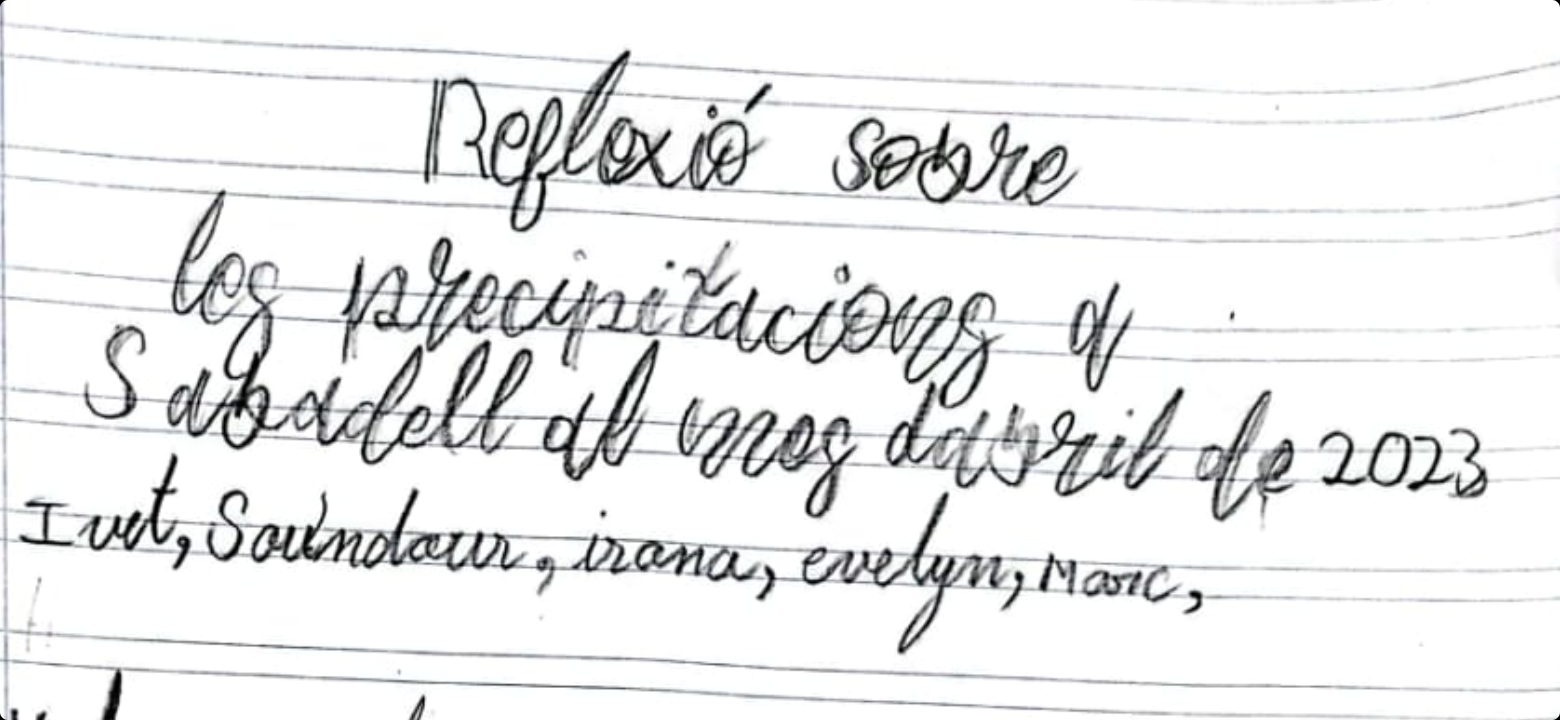 Reflexió sobre
les precipitacions a
Sabadell al mes dabril de 2023
Ivet, irana, evelyn, Marc,